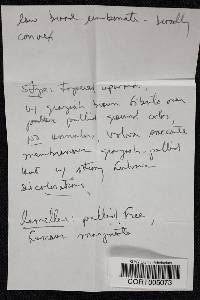 low broad umbonate - broadly
convex
Stipe: tapered upward,
w/ grayish brown fibrils over
pallid ground color,
no annulus, volva saccate
membranous grayish, pallid
but w/
discolorations,
Lamellae: pallid, free,
COR 005073